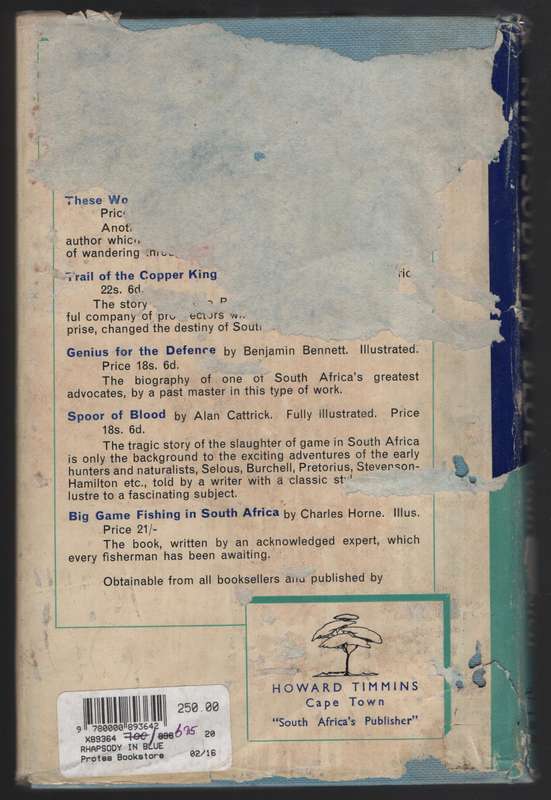 These Wo
Price
Anot
author which
of wandering throu
Trail of the Copper King
22s. 6d.
The story
ful company of prospectors w
prise, changed the destiny of Sout
Genius for the Defence by Benjamin Bennett. Illustrated.
Price 18s. 6d.
The biography of one of South Africa's greatest
advocates, by a past master in this type of work.
Spoor of Blood by Alan Cattrick. Fully illustrated. Price
18s. 6d.
The tragic story of the slaughter of game in South Africa
is only the background to the exciting adventures of the early
hunters and naturalists, Selous, Burchell, Pretorius, Stevenson-
Hamilton etc., told by a writer with a classic sty
lustre to a fascinating subject.
Big Game Fishing in South Africa by Charles Horne. Illus.
Price 21/-
The book, written by an acknowledged expert, which
every fisherman has been awaiting.
Obtainable from all booksellers and published by
HOWARD TIMMINS
Cape Town
"South Africa's Publisher"
250.00
9 780000 893642
X89364 700/ 695 20
RHAPSODY IN BLUE
Protea Bookstore 02/16